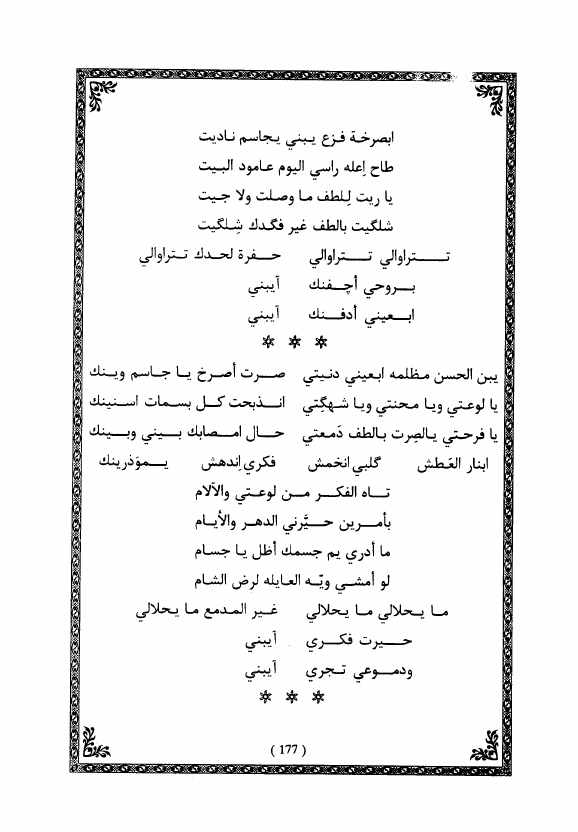 ابصرخة فزع يبني يجاسم ناديت
طاح إعله راسي اليوم عامود البيت
يا ريت للطف ما وصلت ولا جيت
شلگيت بالطف غير فگدك شلگيت
تتراوالي تتراوالي حفرة لحدك تتراوالي
بروحي أچفنك آيبني
ابعيني أدفنك آيبني
* * *
يبن الحسن مظلمه ابعيني دنيتي صرت أصرخ يا جاسم وينك
يا لوعتي ويا محنتي ويا شهگتي انذبحت كل بسمات اسنينك
يا فرحتي يالصرت بالطف دَمعتي حال امصابك بيني وبينك
ابنار العَطش گلبي انخمش فكري إندهش يموَذرينك
تاه الفكر من لوعتي والآلام
بأمرين حيَّرني الدهر والأيام
ما أدري يم جسمك أظل يا جسام
لو أمشي ويّه العايله لرض الشام
ما يحلالي ما يحلالي غير المدمع ما يحلالي
حيرت فكري آيبني
ودموعي تجري آيبني
* * *
( 177 )